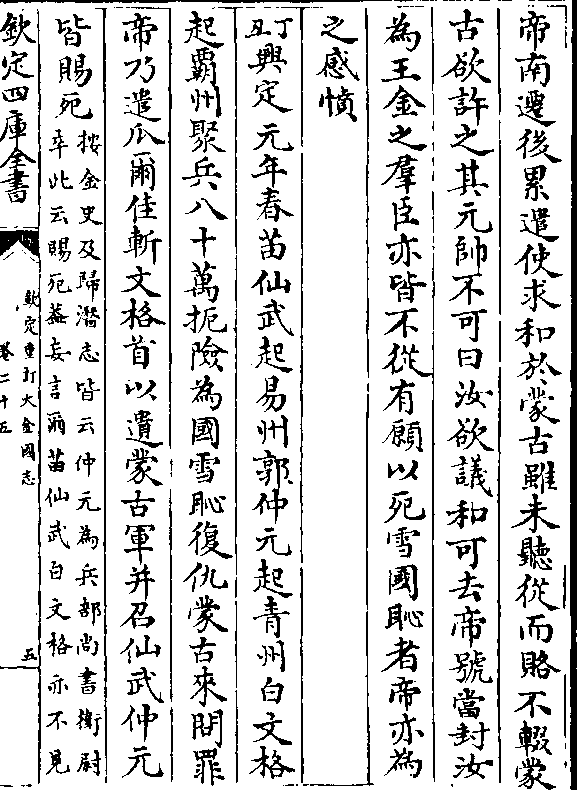 帝南遷後累遣使求和於蒙古雖未聽從而賂不輟蒙
古欲許之其元帥不可曰汝欲議和可去帝號當封汝
為王金之羣臣亦皆不從有願以死雪國恥者帝亦為
之感憤
丁丑興定元年春苗仙武起易州郭仲元起青州白文格
起霸州聚兵八十萬扼險為國雪恥復仇蒙古來問罪
帝乃遣瓜爾佳斬文格首以遺蒙古軍并召仙武仲元
皆賜死按金史及歸潛志皆云仲元為兵部尚書衛尉
卒此云賜死葢妄言爾苗仙武白文格亦不見
欽定四庫全書
欽定重訂大金國志
卷二十五
五